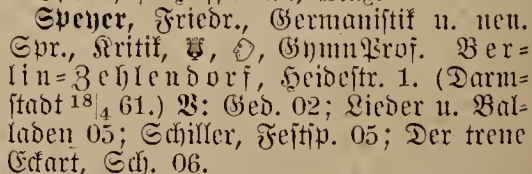 Speyer, Friedr., Germanistik u. neu.
Spr., Kritik, GymnProf. Ber-
lin-Zehlendorf, Heidestr. 1. (Darm-
stadt 18|4 61.) V: Ged. 02; Lieder u. Bal-
laden 05; Schiller, Festsp. 05; Der treue
Eckart, Sch. 06.